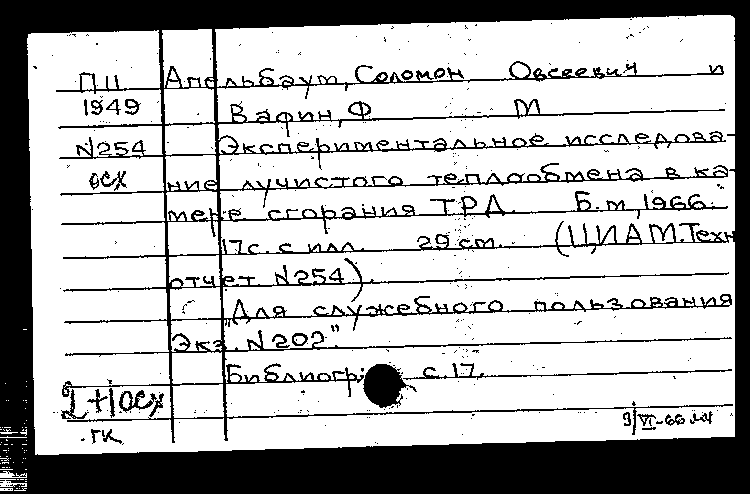 П11 Апельбаум, Соломон Овсеевич и
1949 Вафин, Ф М
N254 Экспериментальное исследова-
осх ние лучистого теплообмена в ка-
мере сгорания ТРД. Б.м, 1966.
17с. с илл. 29 см. (ЦИАМ. Техн
отчет N254).
"Для служебного пользования
Экз. N202".
Библиогр: с. 17.
2+1осх
гк 9/VI-66